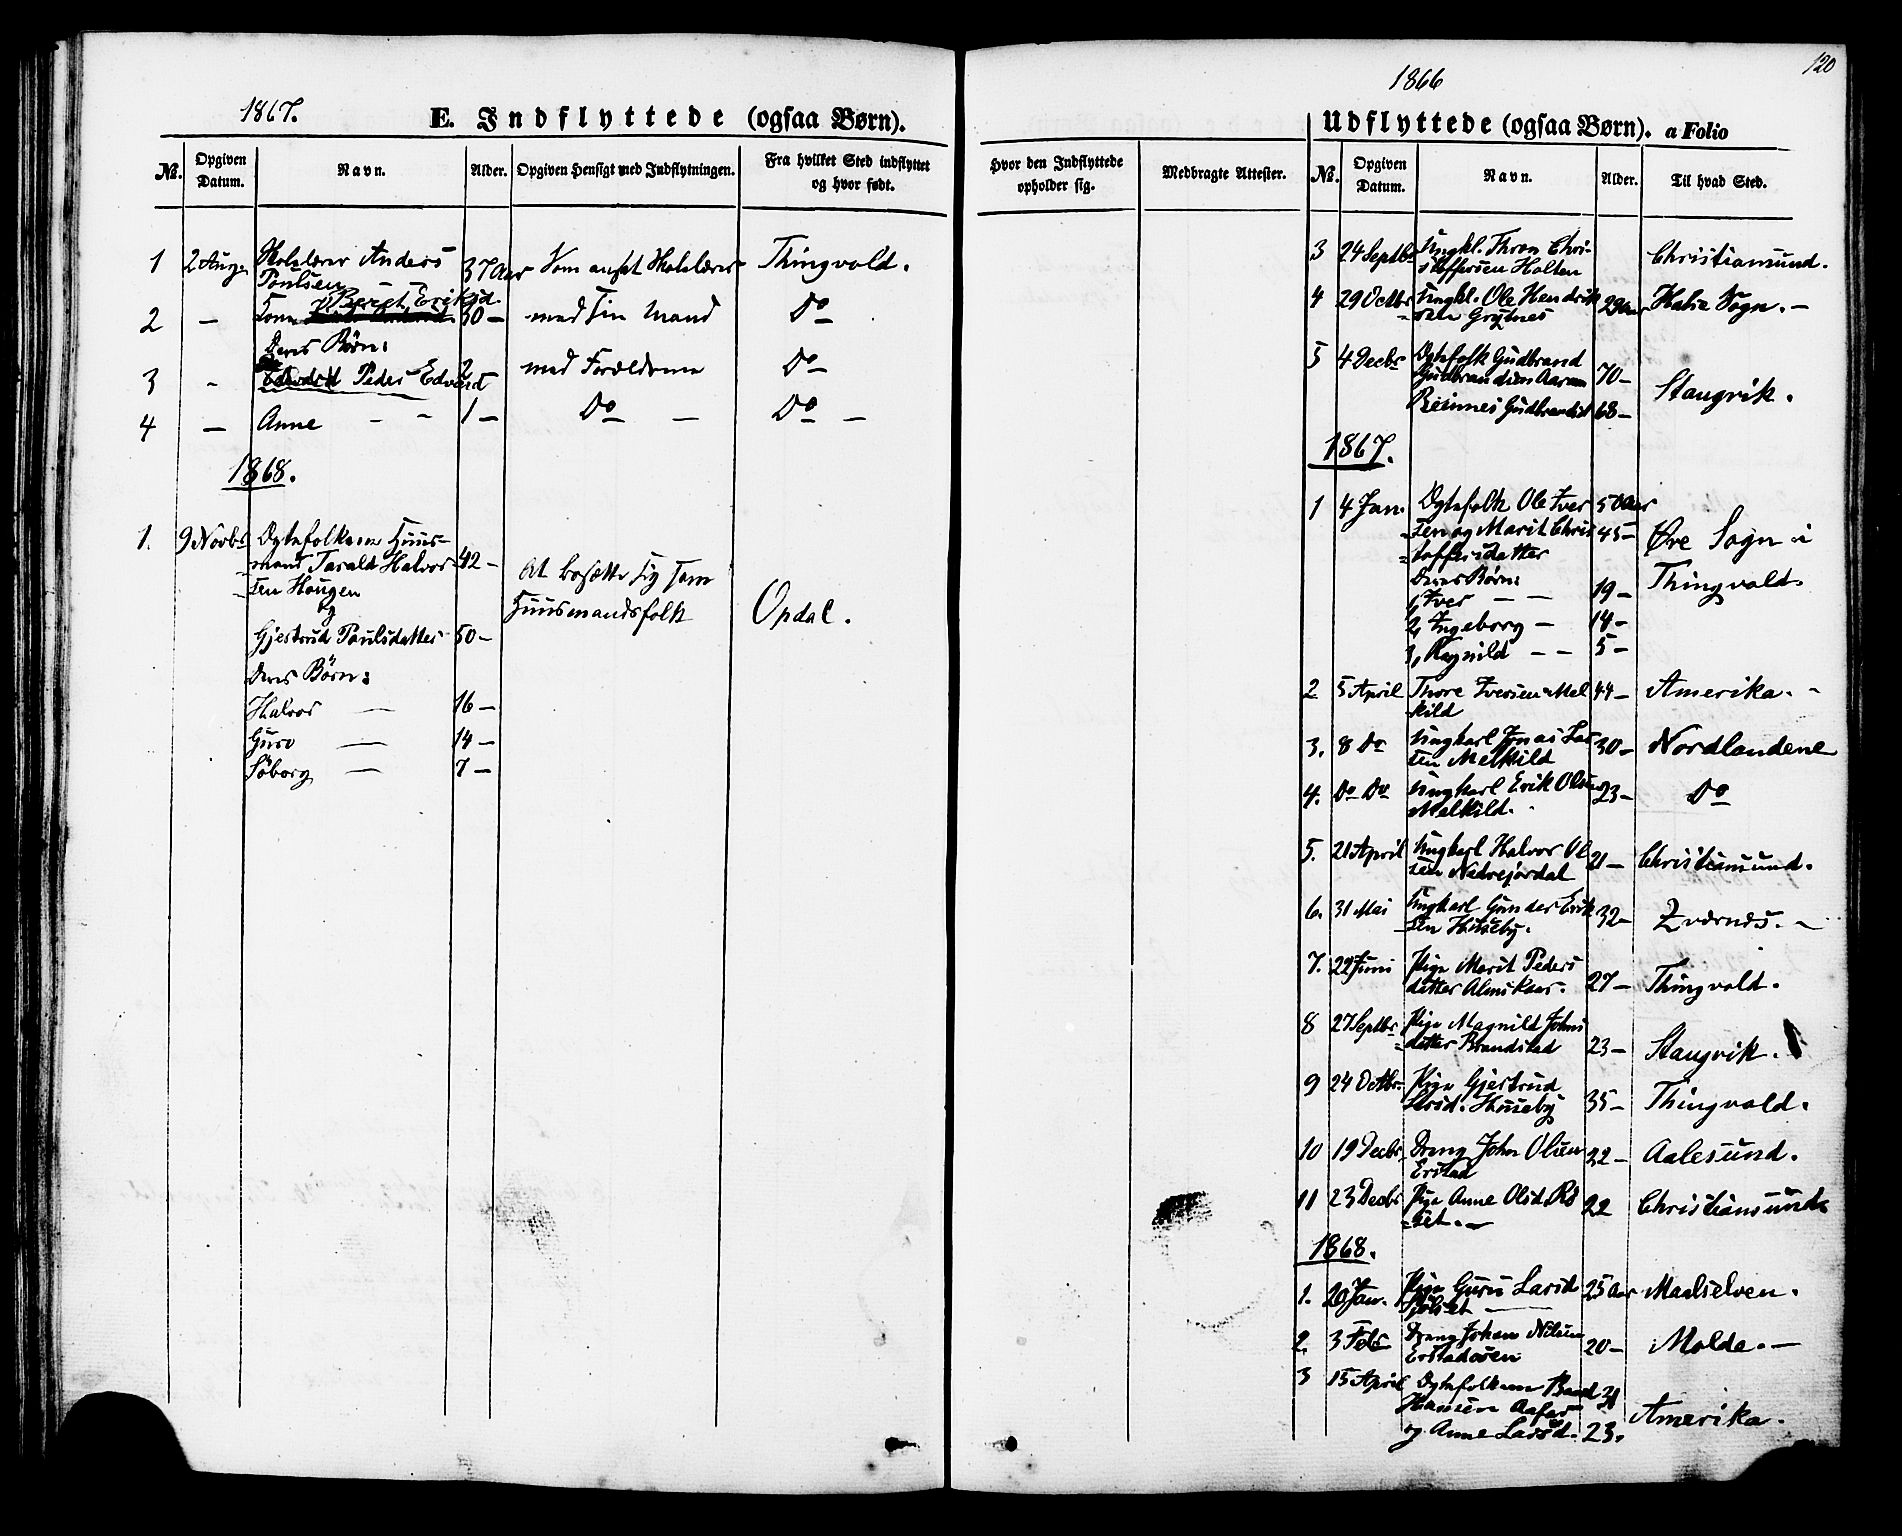 120
1867.
E. Indflyttede (ogsaa Børn).
No.
Opgiven Datum.
Navn.
Alder.
Opgiven Hensigt med Indflytningen.
Fra hvilket Sted indflyttet og hvor født.
1 2 Aug. Skolelærer Anders 37 Aar Som ansat Skolelærer Thingvold.
Poulsen
Berit Eriksd.
2 — Kone 30 — med sin Mand Do
Deres Børn:
3 - Peder Edvard 2 med Forældrene Do —
4 — Anne - - 1 — Do — Do —
1868.
1. 9 Novbr Ægtefolkene Huus-
mand Tarald Halvor- 42 —
sen Haugen
og
At bosætte sig som
Huusmandsfolk
Opdal.
Gjertrud Poulsdatter 50 —
Deres Børn:
Halvor — 16 —
Guro — 14 —
Søborg — 7 —
1866
Udflyttede (ogsaa Børn). a Folio
Hvor den Indflyttede opholder sig.
Medbragte Attester.
No.
Opgiven Datum.
Navn.
Alder.
Til hvad Sted.
3 24 Septbr Ungkl. Thron Chri- Christiansund.
stoffersen Holten
4 29 Octbr Ungkl. Ole Hendrik 29 Aar Halse Sogn. —
sen Grytnes
5 4 Decbr Ægtefolk Gudbrand
Gudbrandsen Aaram 70 —
Stangvik.
Gudbrandsd 68 —
1867.
1 4 Jan. Ægtefolk Ole Iver 50 Aar
sen og Marit Chris 45 — Øre Sogn i
toffersdatter
Deres Børn: Thingvold.
1, Iver — — 19 —
2, Ingeborg — 14 —
3, Ragnild — — 5 —
2 5 April Thore Iversen Mel 44 — Amerika. -
kild
3. 8 Do Ungkarl Jonas Lar 30 — Nordlandene
sen Melkild
4. Do Do Ungkarl Erik Olsen 23 — Do
Melkild.
5. 21 April Ungkarl Halvor Ol 21 — Christiansund.
sen Nedrejordal
6. 31 Mai Ungkarl Gunder Erik 32 — Qværnes. —
sen Huseby.
7. 22 Juni Pige Marit Peders
datter Almskaar. 27 — Thingvold.
8 27 Septbr Pige Magnild Johns
datter Brandstad 23 — Stangvik.
9 24 Octbr. Pige Gjertrud
Larsd. Huseby 35 — Thingvold.
10 19 Decbr. Dreng John Olsen 22 — Aalesund.
Erstad
11 23 Decbr Pige Anne Olsd. Rø 22 Christiansund
set. —
1868.
1. 20 Jan. Pige Guru Larsd 25 Aar Maalselven.
2. 3 Febr Dreng Johan Nilsen 20 — Molde. —
Erstadøsen
3 15 April Ægtefolkene 31
Hansen Aafar Amerika.
og Anne Larsd. 23.